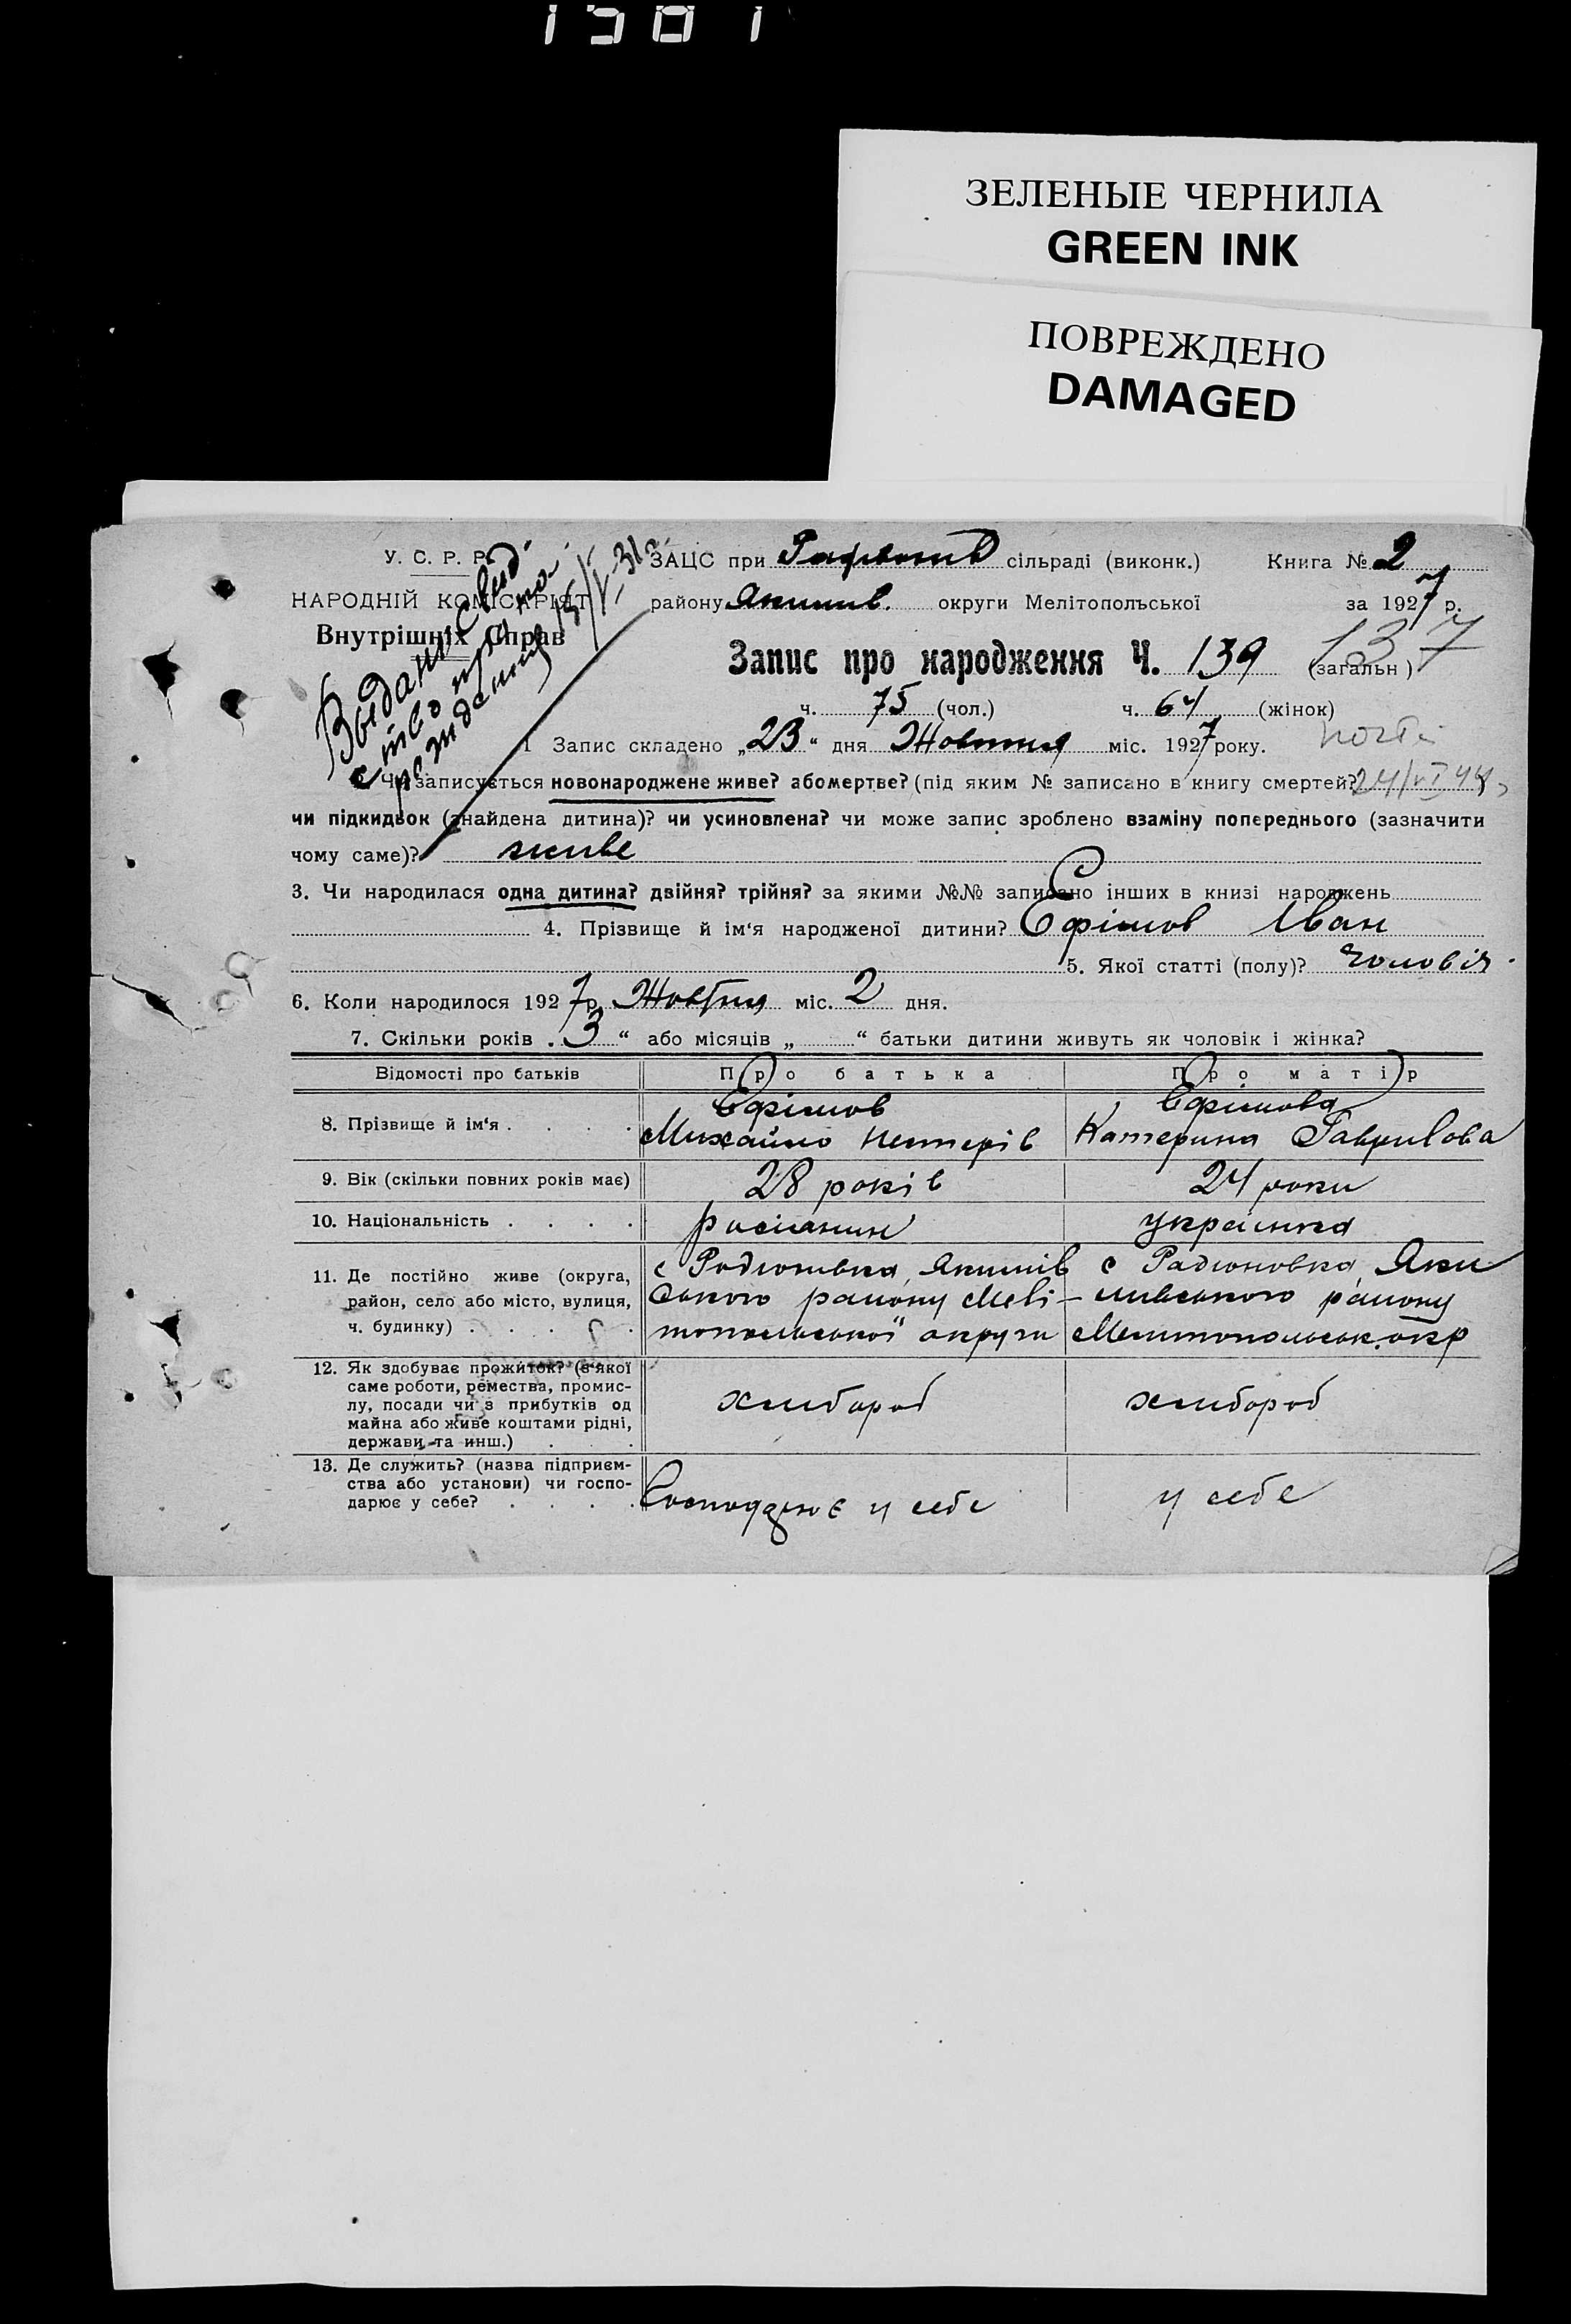 ЗЕЛЕНЫЕ ЧЕРНИЛА
GREEN INK
ПОВРЕЖДЕНО
DAMAGED
У. С. Р. Р.
НАРОДНІЙ КОМІСАРІЯТ
Внутрішніх Справ
ЗАЦС при сільраді (виконк.) Книга № 2
району Якимів. округи Мелітопольської за 1927 р.
Запис про народження Ч. 139 (загальн) 137
ч. 75 (чол.) ч. 64 (жінок)
1 Запис складено „23“ дня Жовтня міс. 1927 року.
Чи записується новонароджене живе? або мертве? (під яким № записано в книгу смертей?
чи підкидьок (знайдена дитина)? чи усиновлена? чи може запис зроблено взаміну попереднього (зазначити
чому саме)? живе
3. Чи народилася одна дитина? двійня? трійня? за якими №№ записано інших в книзі народжень
4. Прізвище й ім‘я народженої дитини? Єфімов Іван
5. Якої статті (полу)? чоловіч.
6. Коли народилося 1927 р. Жовтня міс. 2 дня.
7. Скільки років 3 “ або місяців „ “ батьки дитини живуть як чоловік і жінка?
Відомості про батьків Про батька Про матір
8. Прізвище й ім‘я . . . . Єфімов Єфімова
Михайло Нестерів Катерина Гаврилова
9. Вік (скільки повних років має) 28 років 24 роки
10. Національність . . . . росіанин українка
11. Де постійно живе (округа, с Родионівка, Якимів с Радионовка, Яки
район, село або місто, вулиця, ського району Мелі- мивського району
ч. будинку) . . . . топольської округи Мелитопольськ. окр
12. Як здобуває прожиток? (з якої
саме роботи, ремества, промис-
лу, посади чи з прибутків од хлибороб хлибороб
майна або живе коштами рідні,
держави та инш.) . .
13. Де служить? (назва підприєм-
ства або установи) чи госпо-
дарює у себе? . . . . Господарює у себе у себе